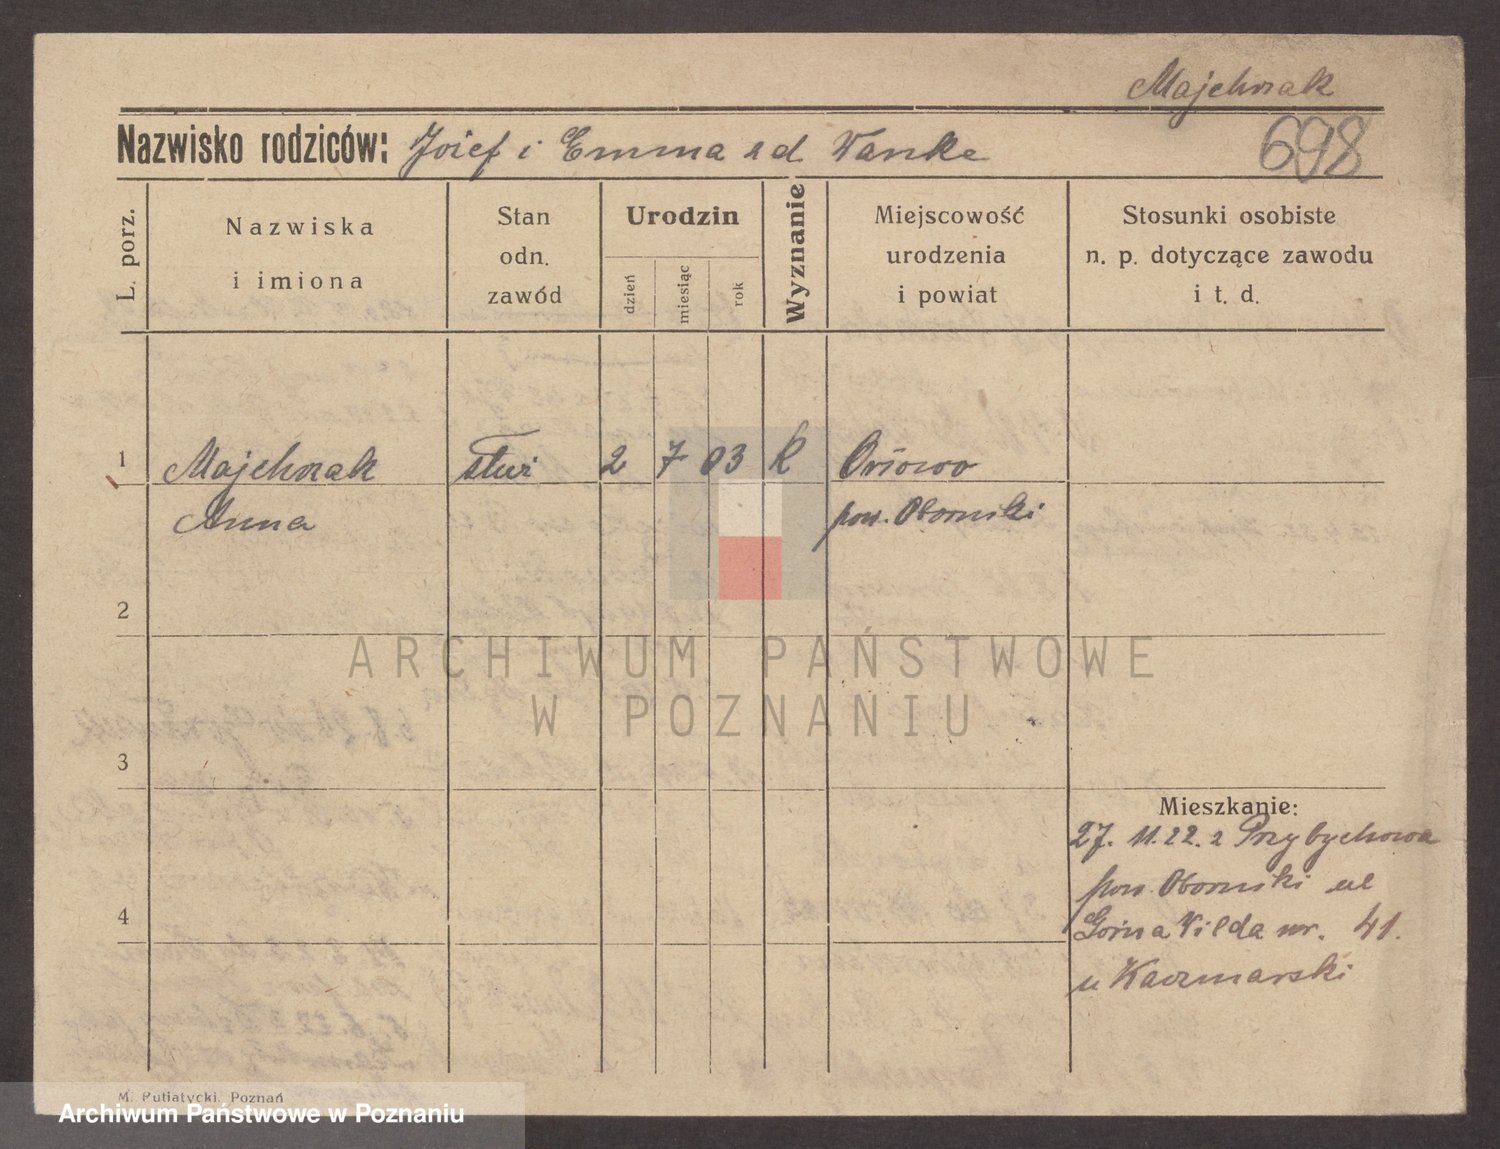 Majchrzak
Nazwisko rodziców: Józef i Emma z d Wanke
698
L. porz.
Nazwiska
i imiona
Stan
odn.
zawód
Urodzin
dzień
miesiąc
rok
Wyznanie
Miejscowość
urodzenia
i powiat
Stosunki osobiste
n. p. dotyczące zawodu
i t. d.
1 Majchrzak służ 2 7 03 R
Anna pow. Oborniki
2
3
4
ARCHIWUM PAŃSTWOWE
W POZNANIU
Mieszkanie:
27. 11. 22. z Przybychowa
pow. Oborniki ul
Górna Wilda nr. 41.
u Kaczmarski
M. Putiatycki, Poznań
Archiwum Państwowe w Poznaniu